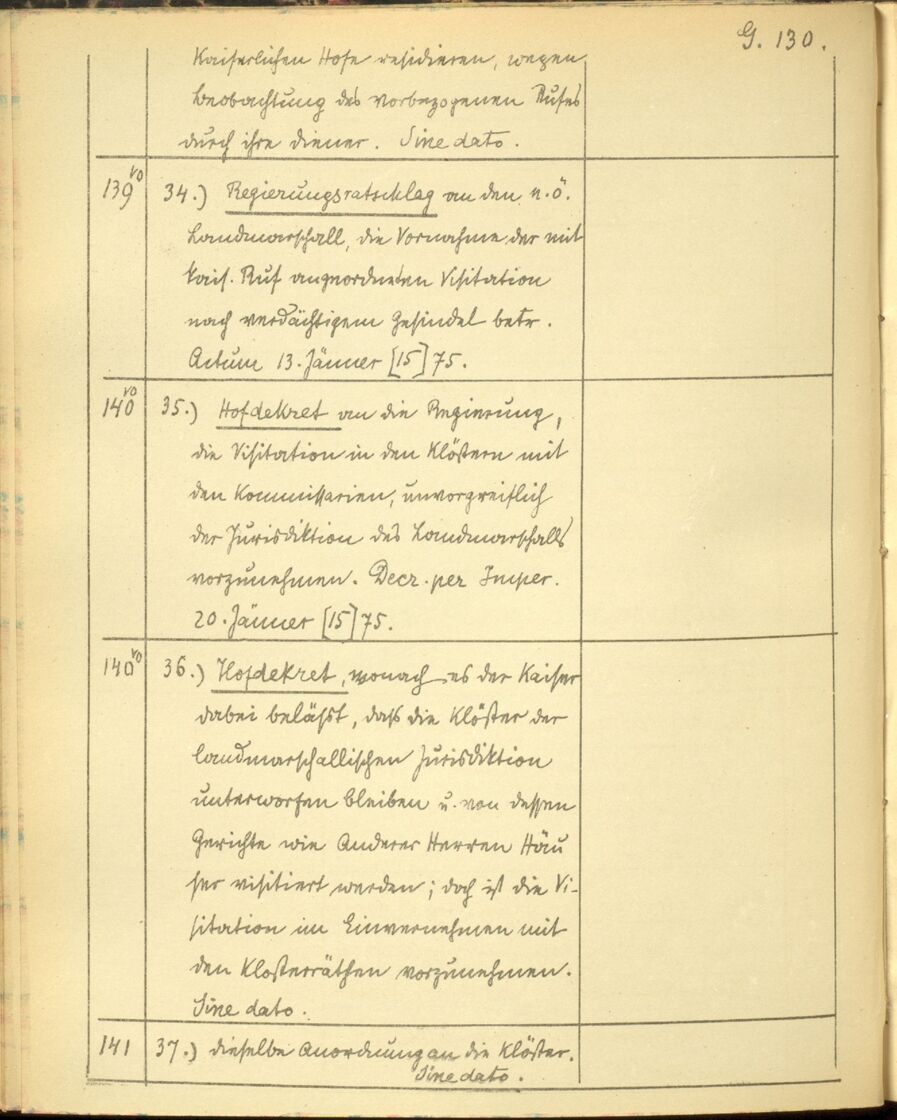 G. 130.
Kaiserlichen Hofe residieren, wegen
Beobachtung des vorbezogenen Rufes
durch ihre diener. Sine dato.
139 vo 34.) Regierungsratschlag an den n.ö.
Landmarschall, die Vornahme der mit
kais. Ruf angeordneten Visitation
nach verdächtigem Gesindel betr.
Actum 13. Jänner [15]75.
140 vo 35.) Hofdekret an die Regierung,
die Visitation in den Klöstern mit
den Kommissarien, unvorgreiflich
der Jurisdiktion des Landmarschalls
vorzunehmen. Decr. per Imper.
20. Jänner [15]75.
140 vo 36.) Hofdekret, wonach es der Kaiser
dabei belässt, dass die Klöster der
landmarschallischen Jurisdiktion
unterworfen bleiben u. von dessen
Gerichte wie Anderer Herren Häu
ser visitiert werden; doch ist die Vi-
sitation im Einvernehmen mit
den Klosterräthen vorzunehmen.
Sine dato.
141 37.) dieselbe Anordnung an die Klöster.
Sine dato.